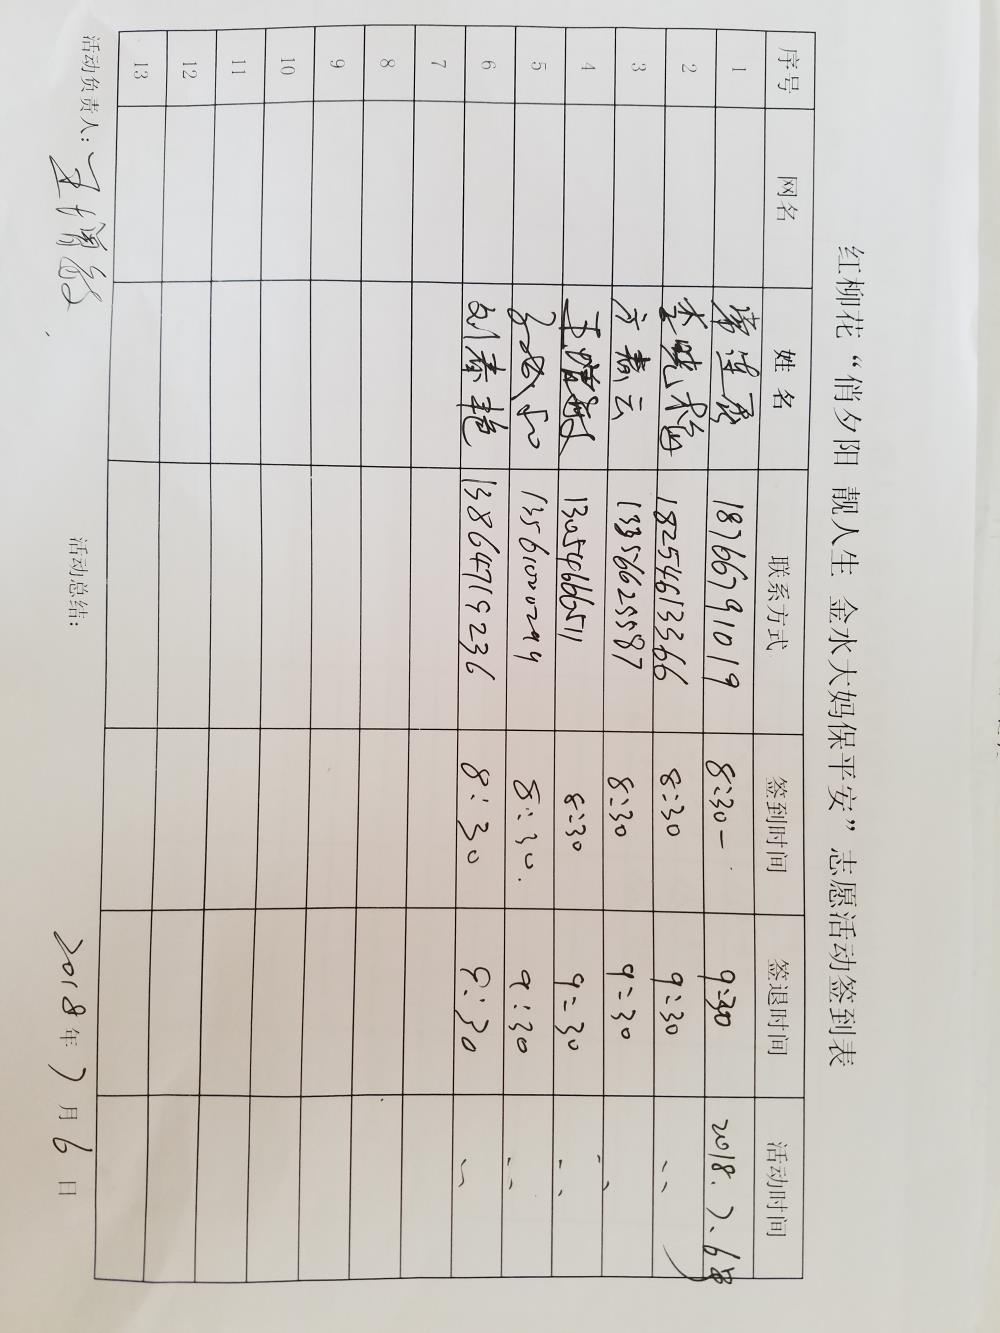 红柳花“俏夕阳 靓人生 金水大妈保平安”志愿活动签到表
序号 网名 姓名 联系方式 签到时间 签退时间 活动时间
1 18766791019 8:30- 9:30 2018.7.6日
2 李晓梅 18254613366 8:30 9:30 〃
3 方春云 8:30 9:30 〃
4 13054666511 8:30 9:30 〃
5 8:30. 9:30 〃
6 刘春艳 13864719236 8:30 9:30 〃
7
8
9
10
11
12
13
活动负责人: 活动总结: 2018年7月6日